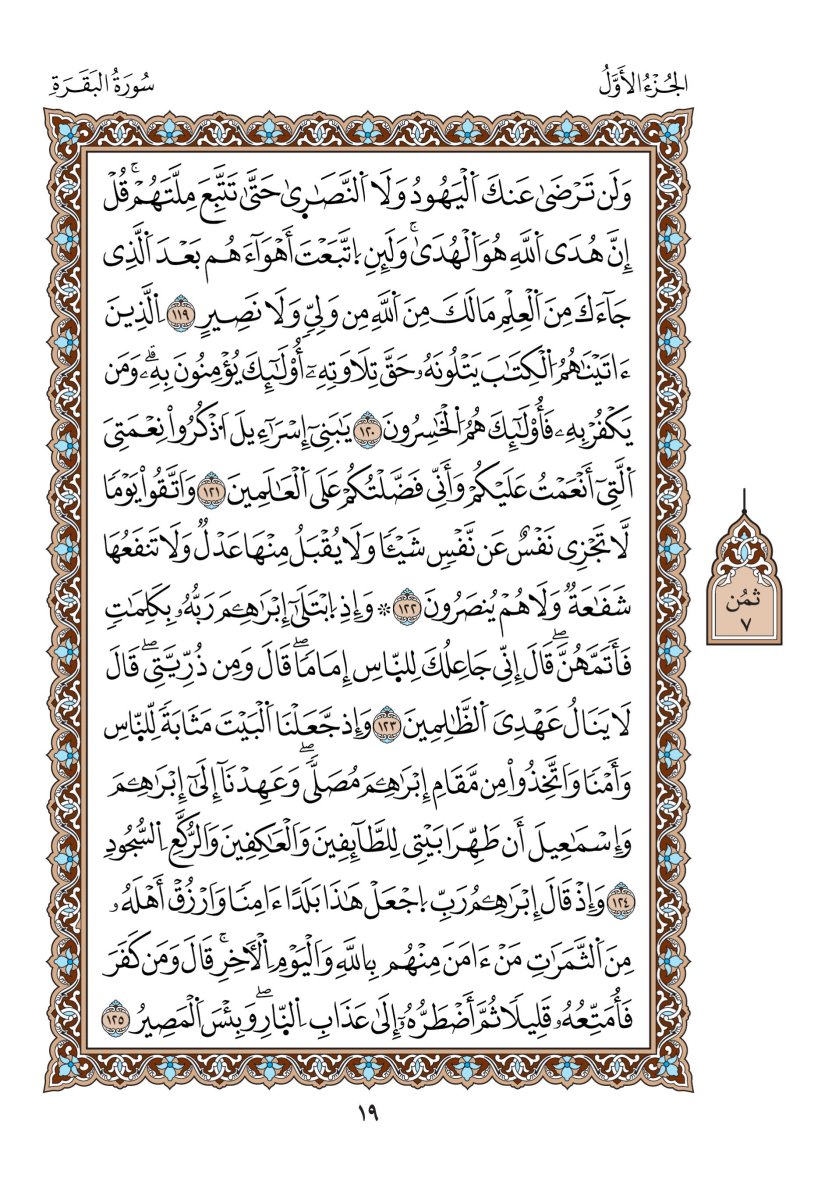 الجُزْءُ الأَوَّلُ
سُورَةُ البَقَرَةِ
وَلَن تَرْضَىٰ عَنكَ اَ۬لْيَهُودُ وَلَا اَ۬لنَّصَٰر۪ىٰ حَتَّىٰ تَتَّبِعَ مِلَّتَهُمْۖ قُلْ
إِنَّ هُدَى اَ۬للَّهِ هُوَ اَ۬لْهُد۪ىٰۖ وَلَئِنِ اِ۪تَّبَعْتَ أَهْوَآءَهُم بَعْدَ اَ۬لَّذِى
جَآءَكَ مِنَ اَ۬لْعِلْمِ مَا لَكَ مِنَ اَ۬للَّهِ مِن وَلِىّٖ وَلَا نَصِيرٍ ١١٩ اِ۬لَّذِينَ
ءَاتَيْنَٰهُمُ اُ۬لْكِتَٰبَ يَتْلُونَهُۥ حَقَّ تِلَاوَتِهِۦٓ أُوْلَٰٓئِكَ يُؤْمِنُونَ بِهِۦۗ وَمَن
يَكْفُرْ بِهِۦ فَأُوْلَٰٓئِكَ هُمُ اُ۬لْخَٰسِرُونَ ١٢٠ يَٰبَنِىٓ إِسْرَآءِيلَ اَ۟ذْكُرُواْ نِعْمَتِىَ
اَ۬لَّتِىٓ أَنْعَمْتُ عَلَيْكُمْ وَأَنِّى فَضَّلْتُكُمْ عَلَى اَ۬لْعَٰلَمِينَ ١٢١ وَاتَّقُواْ يَوْمٗا
لَّا تَجْزِى نَفْسٌ عَن نَّفْسٖ شَيْـٔٗا وَلَا يُقْبَلُ مِنْهَا عَدْلٞ وَلَا تَنفَعُهَا
شَفَٰعَةٞ وَلَا هُمْ يُنصَرُونَ ١٢٢ ۞ وَإِذِ اِ۪بْتَلَىٰٓ إِبْرَٰهِـۧمَ رَبُّهُۥ بِكَلِمَٰتٖ
فَأَتَمَّهُنَّۖ قَالَ إِنِّى جَاعِلُكَ لِلنَّاسِ إِمَامٗاۖ قَالَ وَمِن ذُرِّيَّتِىۖ قَالَ
لَا يَنَالُ عَهْدِىَ اَ۬لظَّٰلِمِينَ ١٢٣ وَإِذ جَّعَلْنَا اَ۬لْبَيْتَ مَثَابَةٗ لِّلنَّاسِ
وَأَمْنٗا وَاتَّخِذُواْ مِن مَّقَامِ إِبْرَٰهِـۧمَ مُصَلّٗىۖ وَعَهِدْنَآ إِلَىٰٓ إِبْرَٰهِـۧمَ
وَإِسْمَٰعِيلَ أَن طَهِّرَا بَيْتِى لِلطَّآئِفِينَ وَالْعَٰكِفِينَ وَالرُّكَّعِ اِ۬لسُّجُودِ
١٢٤ وَإِذْ قَالَ إِبْرَٰهِـۧمُ رَبِّ اِ۪جْعَلْ هَٰذَا بَلَدًا ءَامِنٗا وَارْزُقْ أَهْلَهُۥ
مِنَ اَ۬لثَّمَرَٰتِ مَنْ ءَامَنَ مِنْهُم بِاللَّهِ وَالْيَوْمِ اِ۬لْأٓخِرِۖ قَالَ وَمَن كَفَرَ
فَأُمَتِّعُهُۥ قَلِيلٗا ثُمَّ أَضْطَرُّهُۥٓ إِلَىٰ عَذَابِ اِ۬لنّ۪ارِۖ وَبِئْسَ اَ۬لْمَصِيرُ ١٢٥
ثمُن
٧
١٩